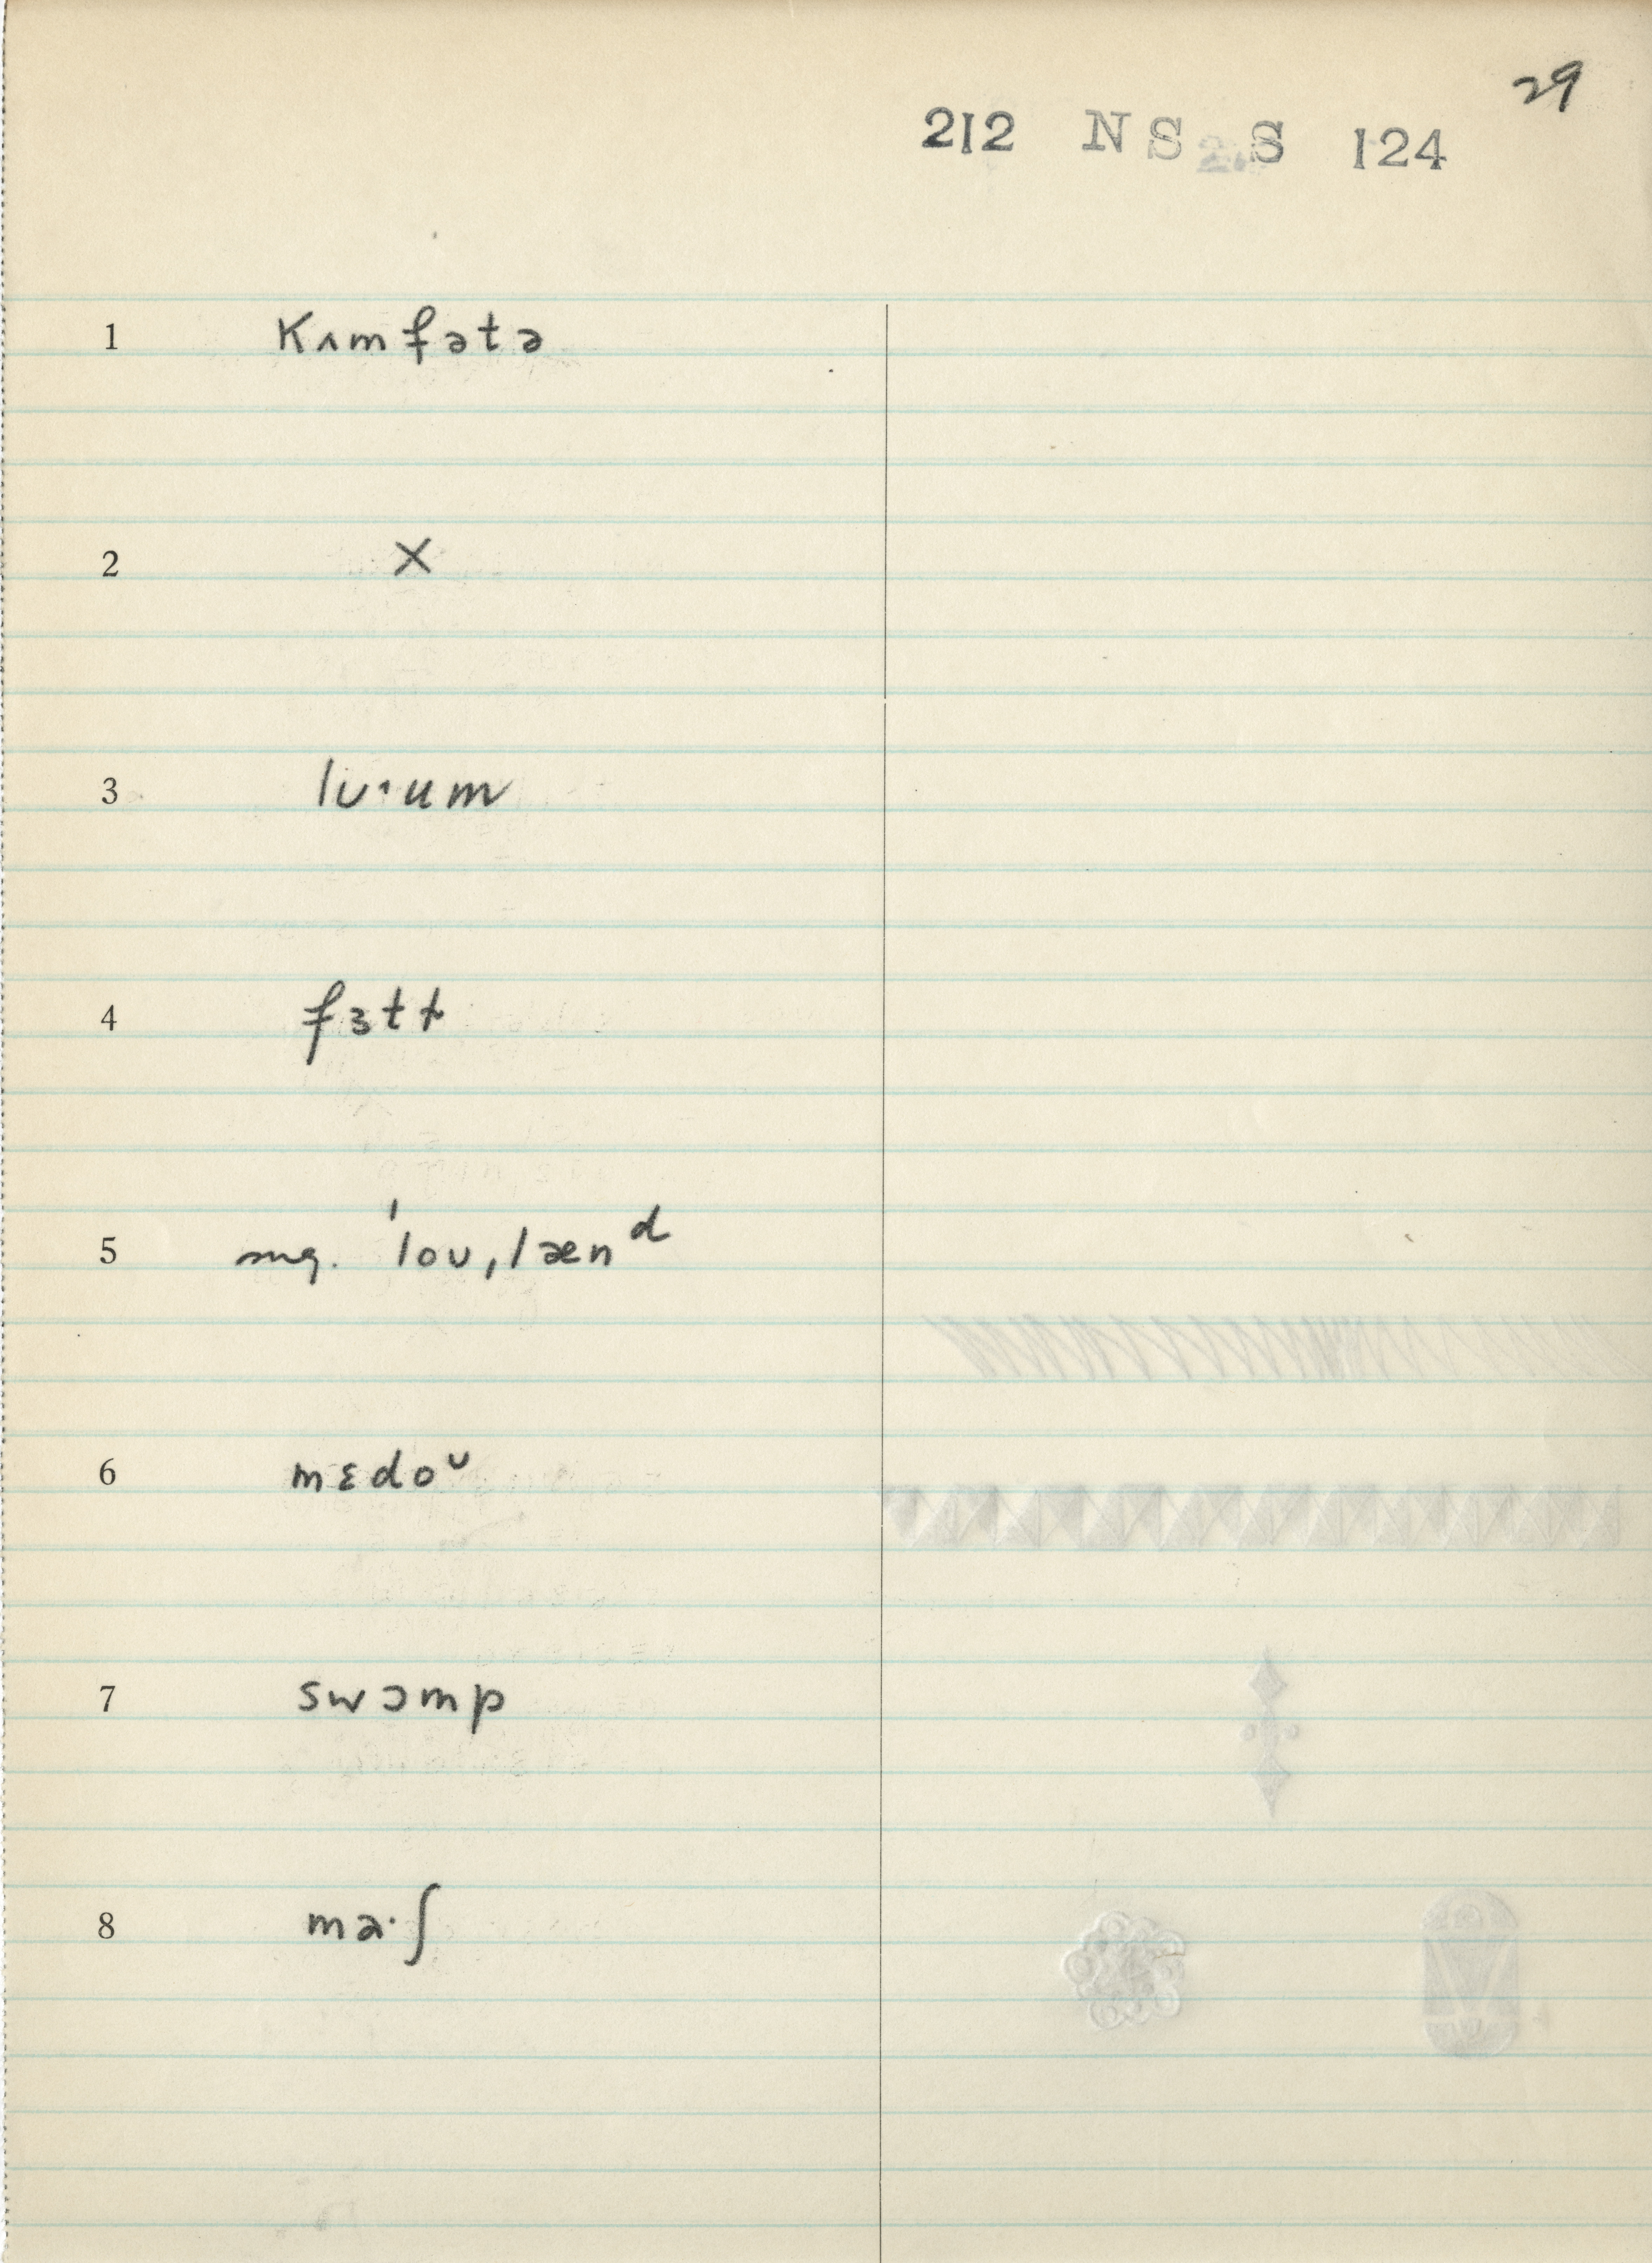 29
212 NS S 124
1 kʌmfətə
2 X
3 lʊ·um
4 fɜtɫ
5 mg. ˈloʊˌlænᵈ
6 mɛdoᶷ
7 swɔmp
8 ma·ʃ